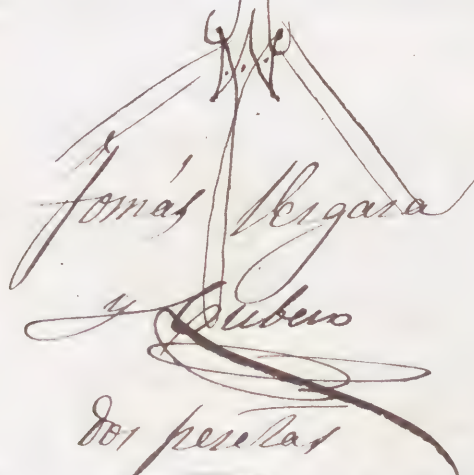 Tomás Vergara
y Cubero
dos pesetas